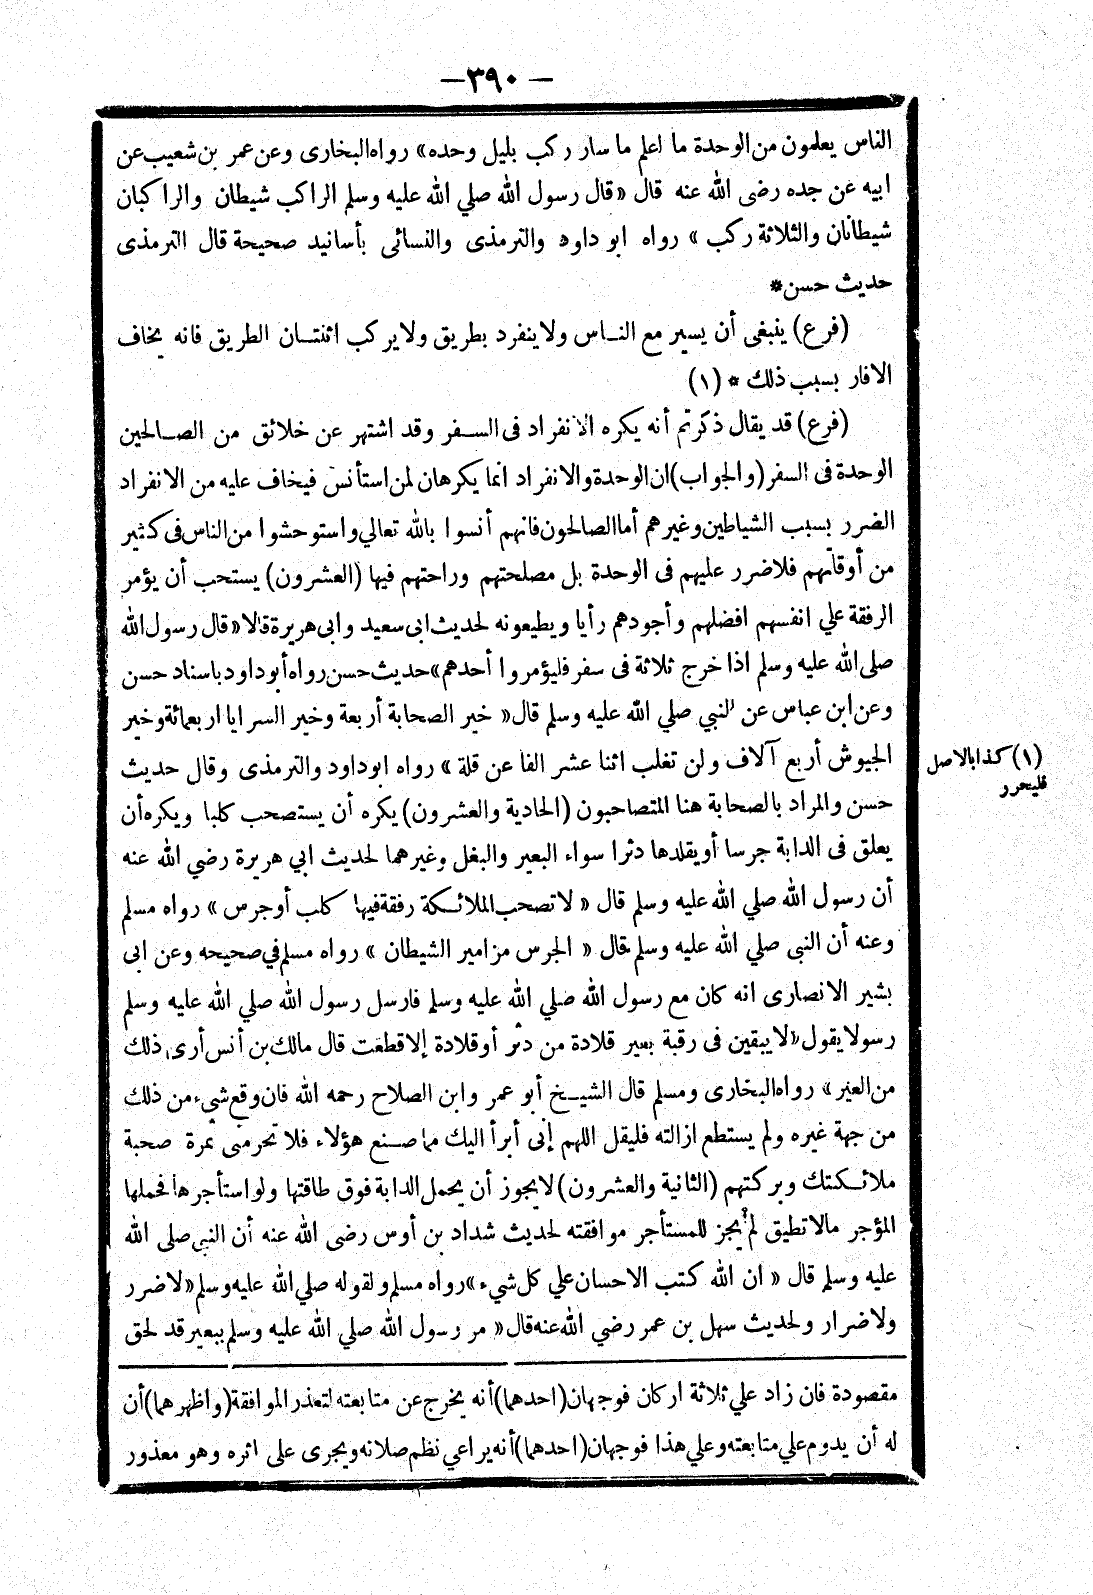 —٣٩٠—
الناس يعلمون من الوحدة ما اعلم ما سار ركب بليل وحده» رواه البخارى وعن عمر بن شعيب عن
ابيه عن جده رضى الله عنه قال «قال رسول الله صلي الله عليه وسلم الراكب شيطان والراكبان
شيطانان والثلاثة ركب» رواه ابو داود والترمذى والنسائى بأسانيد صحيحة قال الترمذى
حديث حسن*
(فرع) ينبغى أن يسير مع الناس ولا ينفرد بطريق ولا يركب اثنتان الطريق فانه يخاف
الافار بسبب ذلك * (١)
(فرع) قد يقال ذكرتم أنه يكره الانفراد فى السفر وقد اشتهر عن خلائق من الصالحين
الوحدة فى السفر (والجواب) ان الوحدة والانفراد انما يكرهان لمن استأنس فيخاف عليه من الانفراد
الضرر بسبب الشياطين وغيرهم أما الصالحون فانهم أنسوا بالله تعالي واستوحشوا من الناس فى كثير
من أوقاتهم فلا ضرر عليهم فى الوحدة بل مصلحتهم وراحتهم فيها (العشرون) يستحب أن يؤمر
الرفقة علي انفسهم افضلهم وأجودهم رأيا ويطيعونه لحديث ابى سعيد وابى هريرة قالا «قال رسول الله
صلى الله عليه وسلم اذا خرج ثلاثة فى سفر فليؤمروا أحدهم» حديث حسن رواه أبو داود باسناد حسن
وعن ابن عباس عن النبي صلي الله عليه وسلم قال «خير الصحابة أربعة وخير السرايا اربعمائة وخير
الجيوش أربع آلاف ولن تغلب اثنا عشر الفا عن قلة» رواه ابو داود والترمذى وقال حديث
حسن والمراد بالصحابة هنا المتصاحبون (الحادية والعشرون) يكره أن يستصحب كلبا ويكره أن
يعلق فى الدابة جرسا أو يقلدها دثرا سواء البعير والبغل وغيرهما لحديث ابي هريرة رضي الله عنه
أن رسول الله صلي الله عليه وسلم قال «لا تصحب الملائكة رفقة فيها كلب أو جرس» رواه مسلم
وعنه أن النبى صلي الله عليه وسلم قال «الجرس مزامير الشيطان» رواه مسلم في صحيحه وعن ابى
بشير الانصارى انه كان مع رسول الله صلي الله عليه وسلم فارسل رسول الله صلي الله عليه وسلم
رسولا يقول «لا يبقين فى رقبة بعير قلادة من دثر أو قلادة إلا قطعت قال مالك بن أنس أرى ذلك
من العنبر» رواه البخارى ومسلم قال الشيخ أبو عمر وابن الصلاح رحمه الله فان وقع شيء من ذلك
من جهة غيره ولم يستطع ازالته فليقل اللهم إنى أبرأ اليك مما صنع هؤلاء فلا تحرمنى ثمرة صحبة
ملائكتك وبركتهم (الثانية والعشرون) لا يجوز أن يحمل الدابة فوق طاقتها ولو استأجرها فحملها
المؤجر مالا تطيق لم يجز للمستأجر موافقته لحديث شداد بن أوس رضى الله عنه أن النبي صلى الله
عليه وسلم قال «ان الله كتب الاحسان علي كل شيء» رواه مسلم ولقوله صلي الله عليه وسلم «لا ضرر
ولا ضرار ولحديث سهل بن عمر رضي الله عنه قال «مر رسول الله صلي الله عليه وسلم ببعير قد لحق
(١) كذا بالاصل
فليحرر
مقصودة فان زاد علي ثلاثة اركان فوجهان (احدهما) أنه يخرج عن متابعته لتعذر الموافقة (واظهرهما) أن
له أن يدوم علي متابعته وعلي هذا فوجهان (احدهما) أنه يراعي نظم صلاته ويجرى على اثره وهو معذور